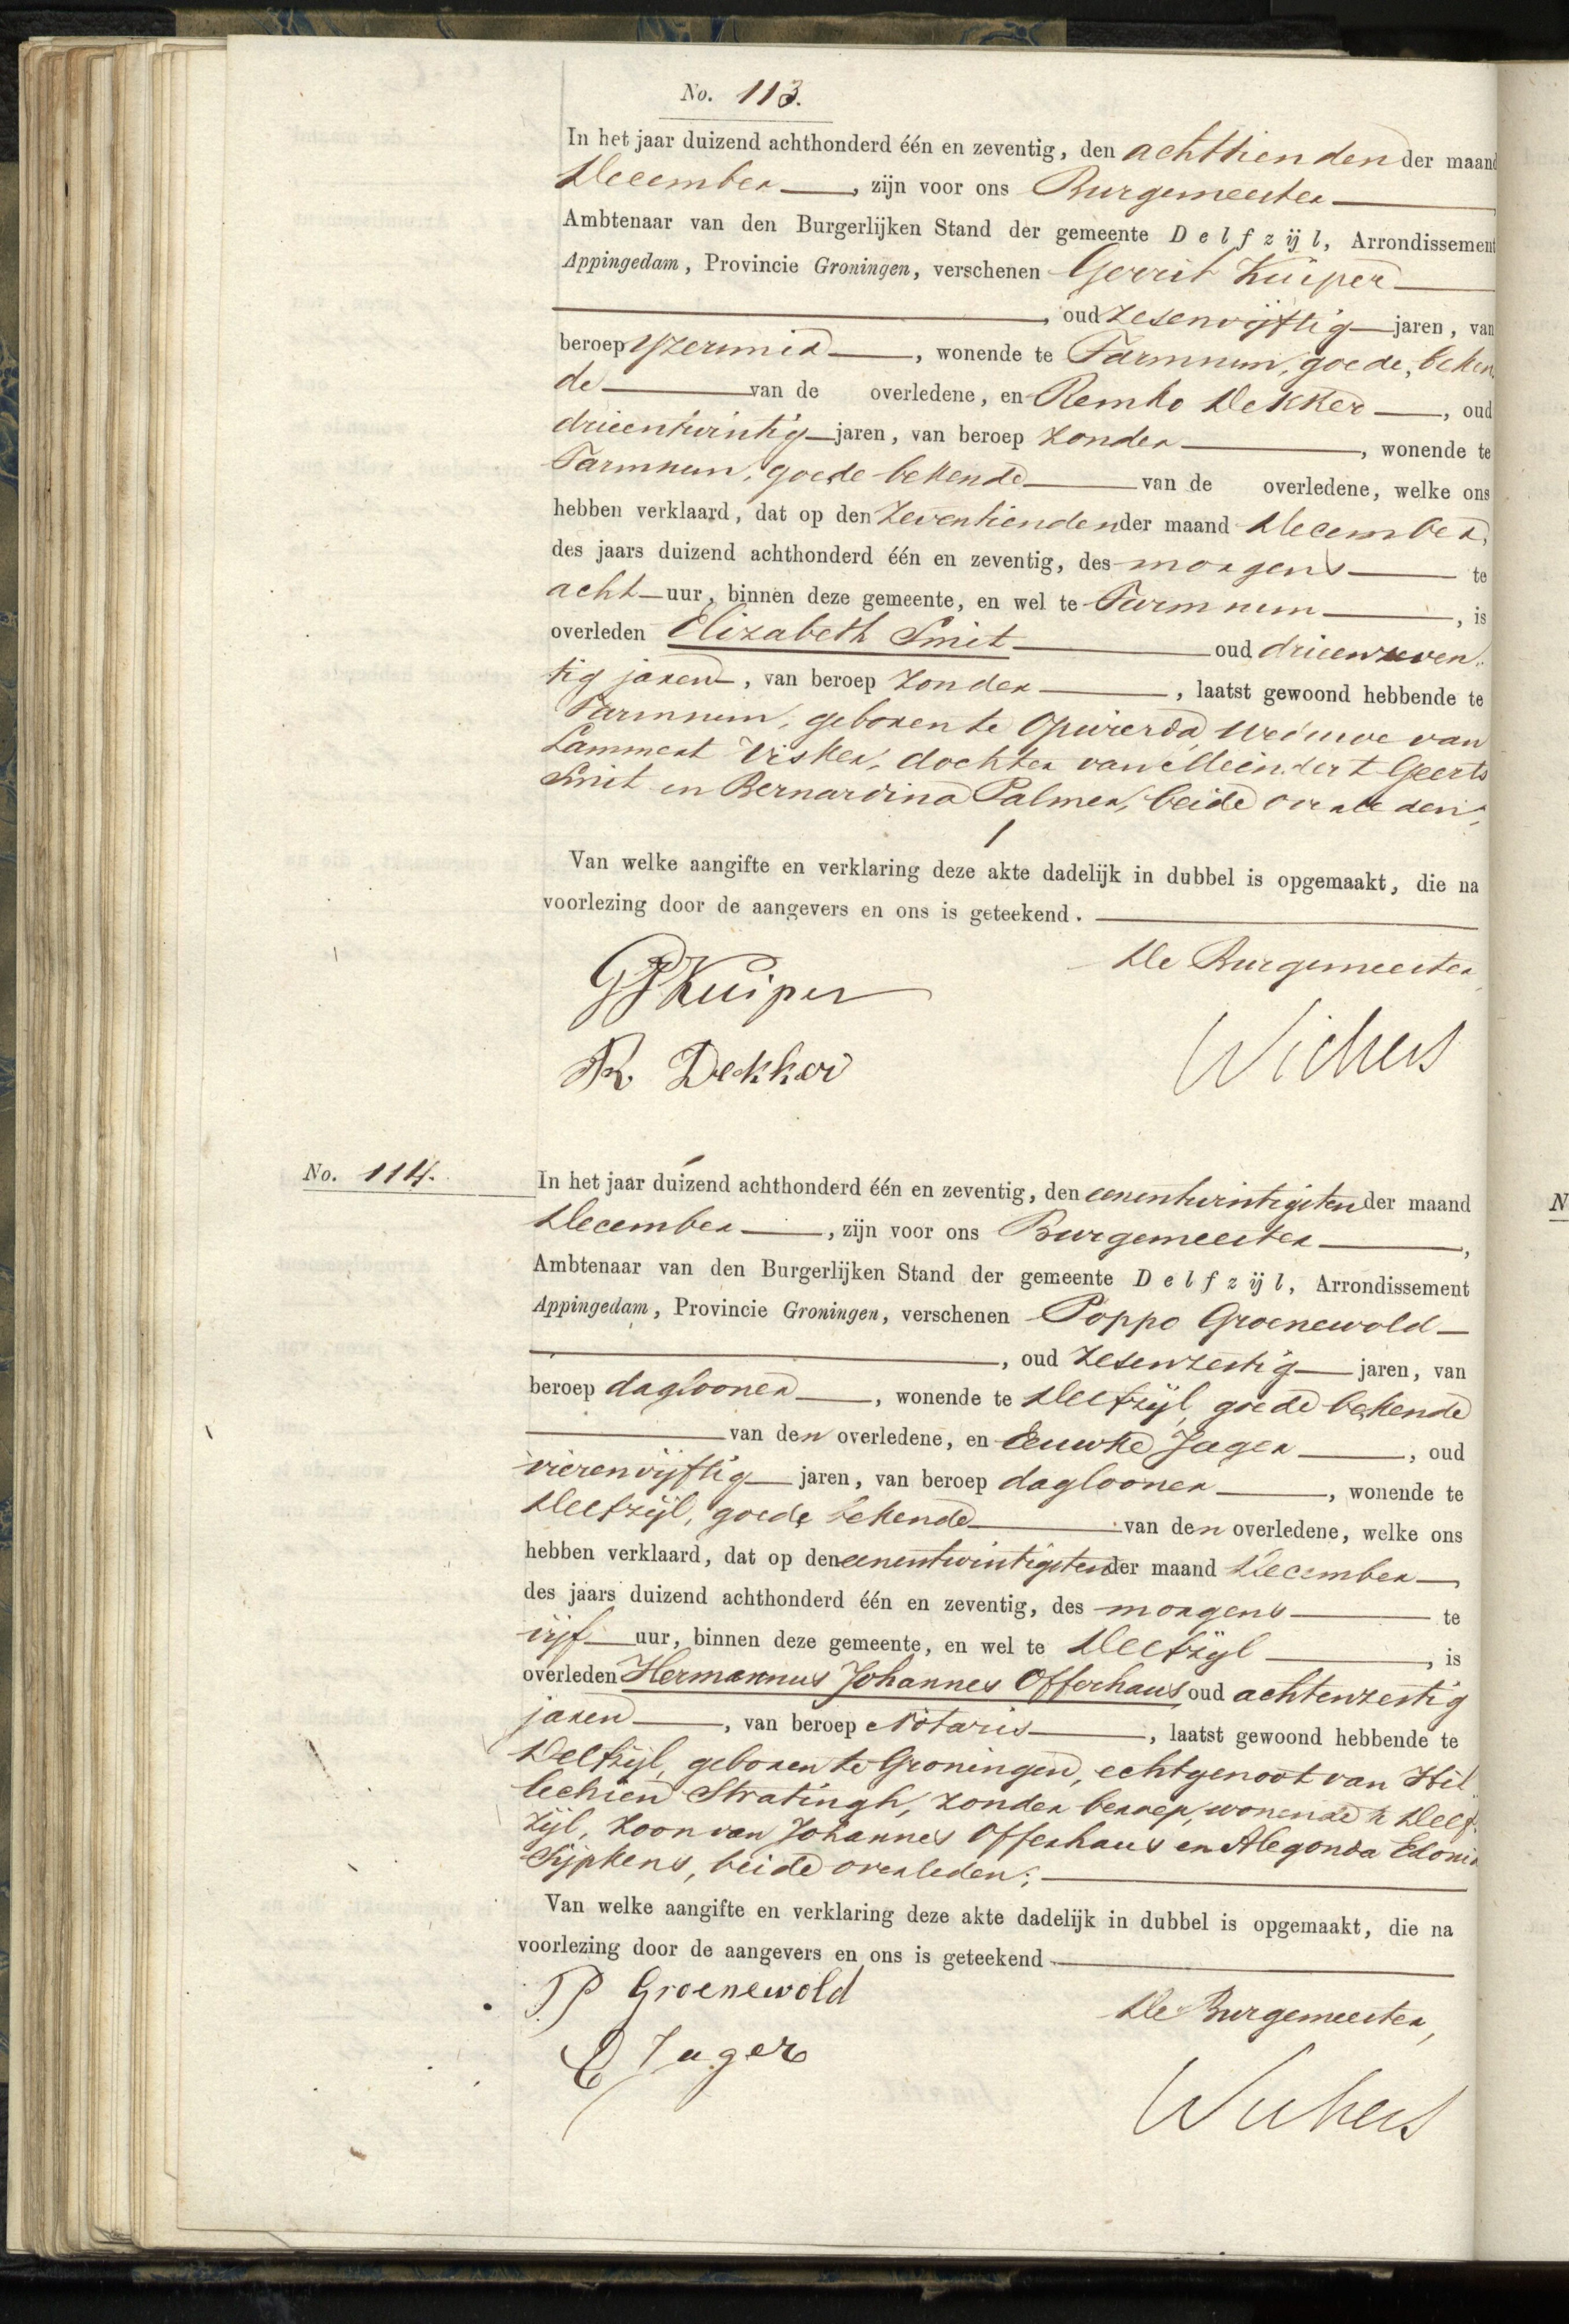 No. 113.
In het jaar duizend achthonderd één en zeventig, den achttienden der maand
December, zijn voor ons Burgemeester
Ambtenaar van den Burgerlijken Stand der gemeente Delfzijl, Arrondissement
Appingedam, Provincie Groningen, verschenen Gerrit Kuiper
, oud zesenvijftig jaren, van
beroep yzersmid, wonende te Farmsum, goede beken
de van de overledene, en Remko Dekker, oud
drieentwintig jaren, van beroep zonder, wonende te
Farmsum, goede bekende van de overledene, welke ons
hebben verklaard, dat op den zeventienden der maand December,
des jaars duizend achthonderd één en zeventig, des morgens te
acht uur, binnen deze gemeente, en wel te Farmsum, is
overleden Elizabeth Smit oud drieenzeven
tig jaren, van beroep zonder, laatst gewoond hebbende te
Farmsum, geboren te Opwierda, weduwe van
Lammert Visker, dochter van Meindert Geerts
Smit en Bernardina Palmer, beide overleden;
Van welke aangifte en verklaring deze akte dadelijk in dubbel is opgemaakt, die na
voorlezing door de aangevers en ons is geteekend.
De Burgemeester
Kuiper
Wichers
R Dekker
No. 114.
In het jaar duizend achthonderd één en zeventig, den eenentwintigsten der maand
December, zijn voor ons Burgemeester,
Ambtenaar van den Burgerlijken Stand der gemeente Delfzijl, Arrondissement
Appingedam, Provincie Groningen, verschenen Poppo Groenewold
, oud zesenzestig jaren, van
beroep daglooner, wonende te Delfzijl, goede bekende
van den overledene, en Eeuwke Jager, oud
vierenvijftig jaren, van beroep daglooner, wonende te
Delfzijl, goede bekende van den overledene, welke ons
hebben verklaard, dat op den eenentwintigsten der maand December
des jaars duizend achthonderd één en zeventig, des morgens te
vijf uur, binnen deze gemeente, en wel te Delfzijl, is
overleden Hermannus Johannes Offerhaus oud achtenzestig
jaren, van beroep Notaris, laatst gewoond hebbende te
Delfzijl, geboren te Groningen, echtgenoot van Hil
lechien Stratingh, zonder beroep, wonende te Delf
zijl, zoon van Johannes Offerhaus en Alegonda Edonia
Sypkens, beide overleden;
Van welke aangifte en verklaring deze akte dadelijk in dubbel is opgemaakt, die na
voorlezing door de aangevers en ons is geteekend
P Groenewold
De Burgemeester,
E Jager
Wichers